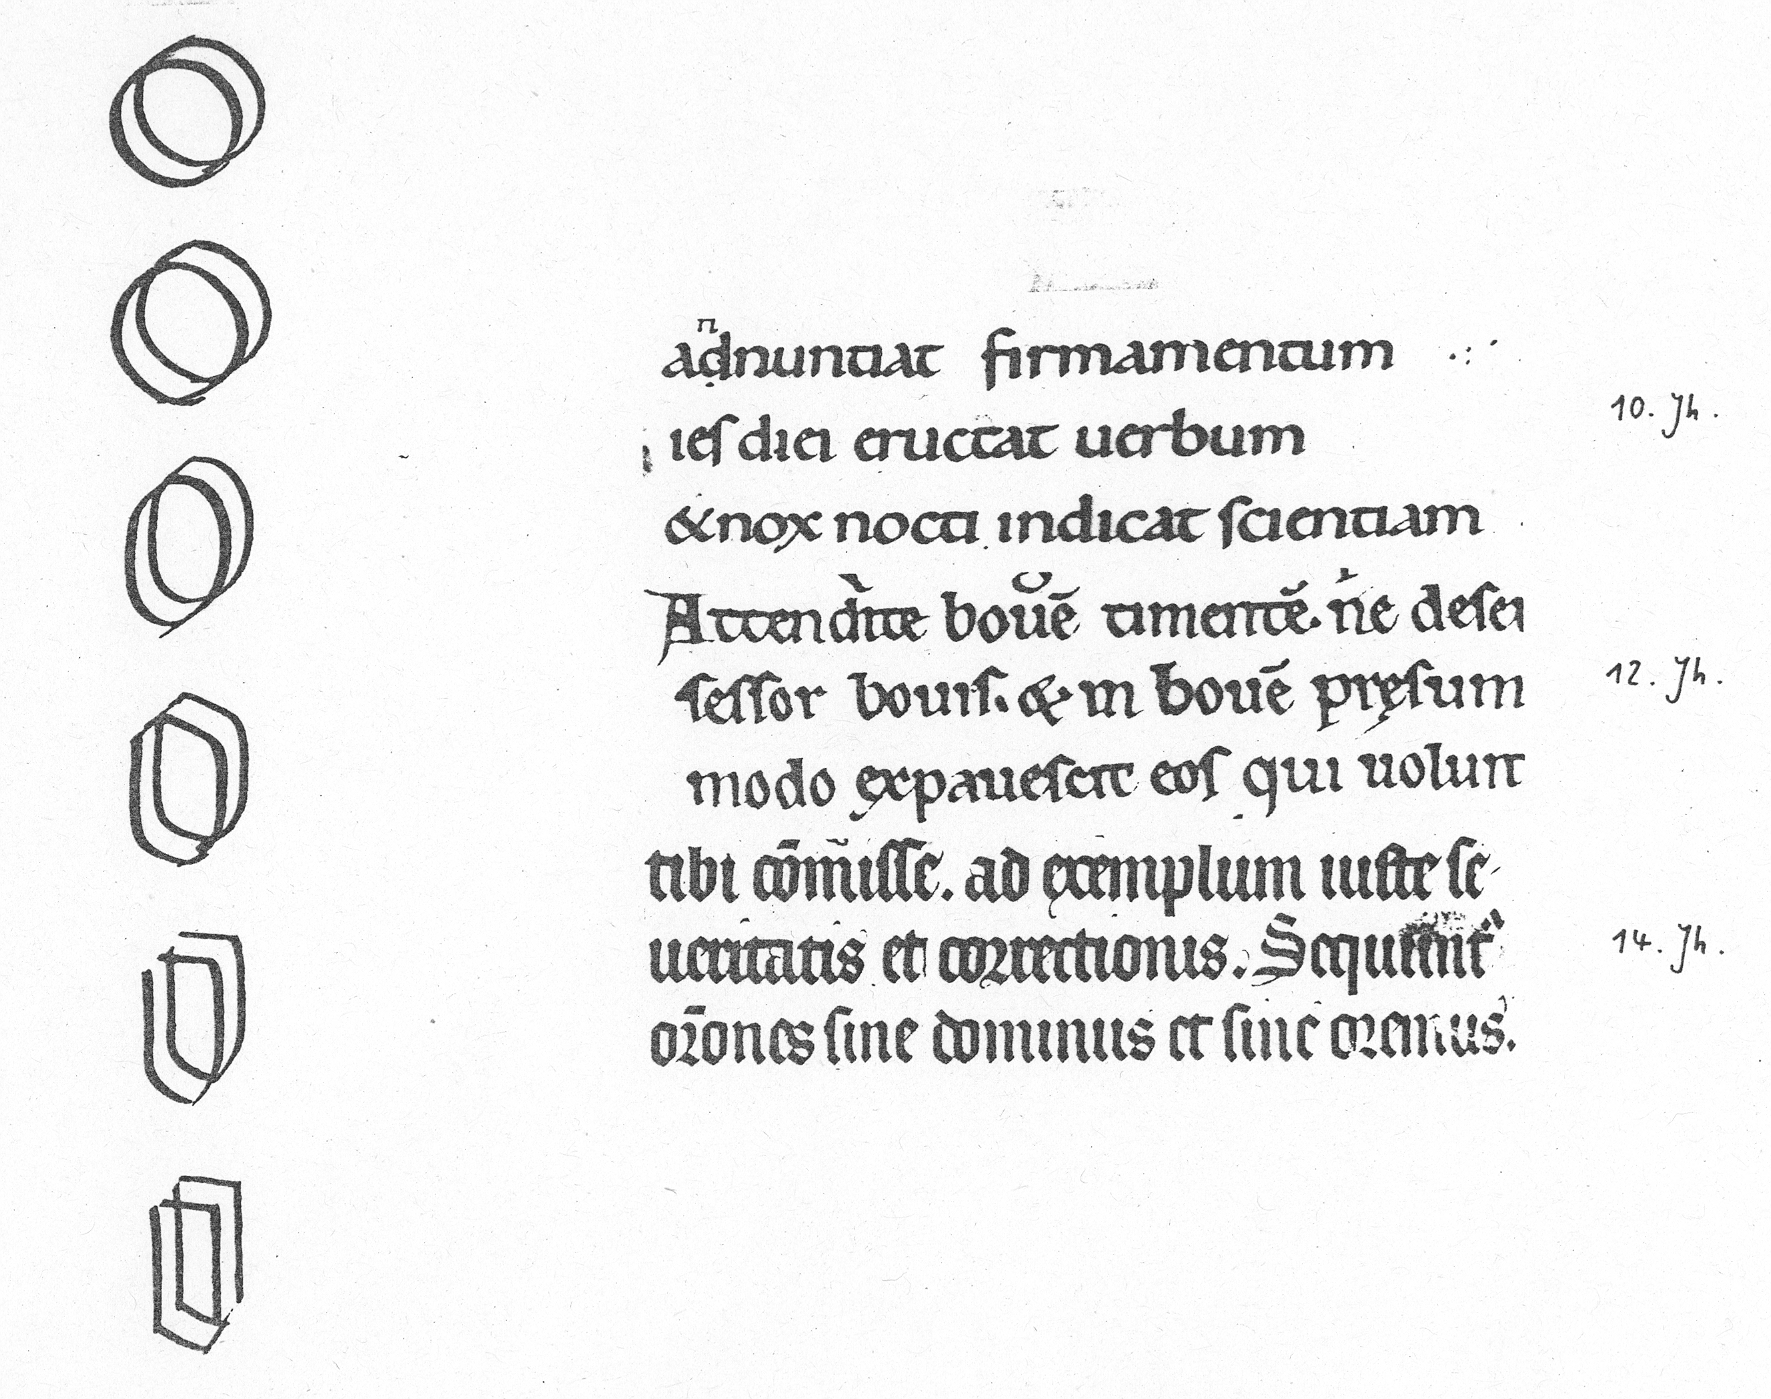 adnuntiat firmamentum
n
ies diei eructat uerbum
10. Jh.
&nox nocti indicat scientiam
Attendite bouē timentē. ne desei
sessor bouis. & in bouē pręsum
12. Jh.
modo expauescit eos qui uolunt
tibi cōm̄isse. ad exemplum iuste se
ueritatis et correctionis. Sequunt᷑
14. Jh.
or̄ones sine dominus et sine oremus.